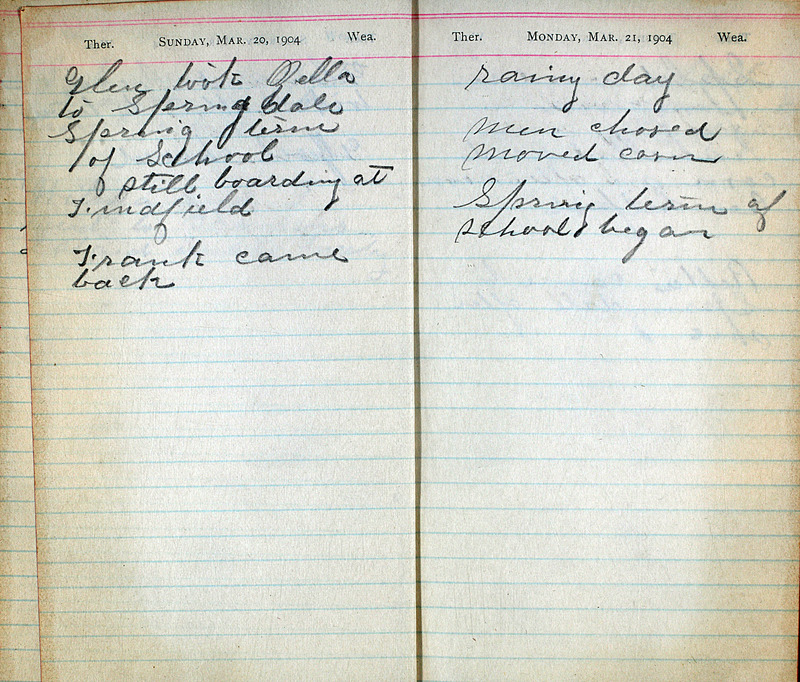 Ther. SUNDAY, MAR. 20, 1904 Wea.
Glen took Della
to Springdale
Spring term
of School
still boarding at
Findfield
Frank came
back
Ther. MONDAY, MAR. 21, 1904 Wea.
rainy day
men chored
moved corn
Spring term of
school began